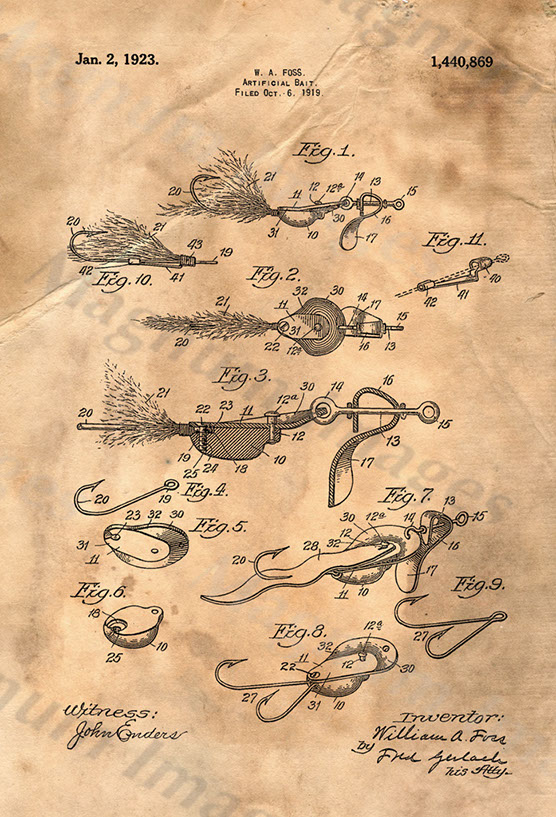 Jan. 2, 1923.
1,440,869
W. A. FOSS.
ARTIFICIAL BAIT.
FILED OCT. 6. 1919.
Fig. 1.
20 21 11 12 12a 14 13 15
31 10 30 17 16
20 21 43 19
42 41
Fig. 10.
Fig. 11.
40
42 41
Fig. 2.
21 32 30 17
20 22 11 31 12a 14 16 13
Fig. 3.
21 12a 30 14 16
20 22 23 11 15
19 25 24 18 10 12 13 17
Fig. 4.
20 19
Fig. 5.
23 32 30
31 11
Fig. 6.
18
25 10
Fig. 7.
30 12a 14 13 15
20 28 32 12 16
11 10 17
Fig. 8.
11 32 12a
22 12 30
27 31 10
Fig. 9.
27
Witness:
John Enders
Inventor:
William A. Foss
by Fred Gerlach
his Atty.
Magnum Images